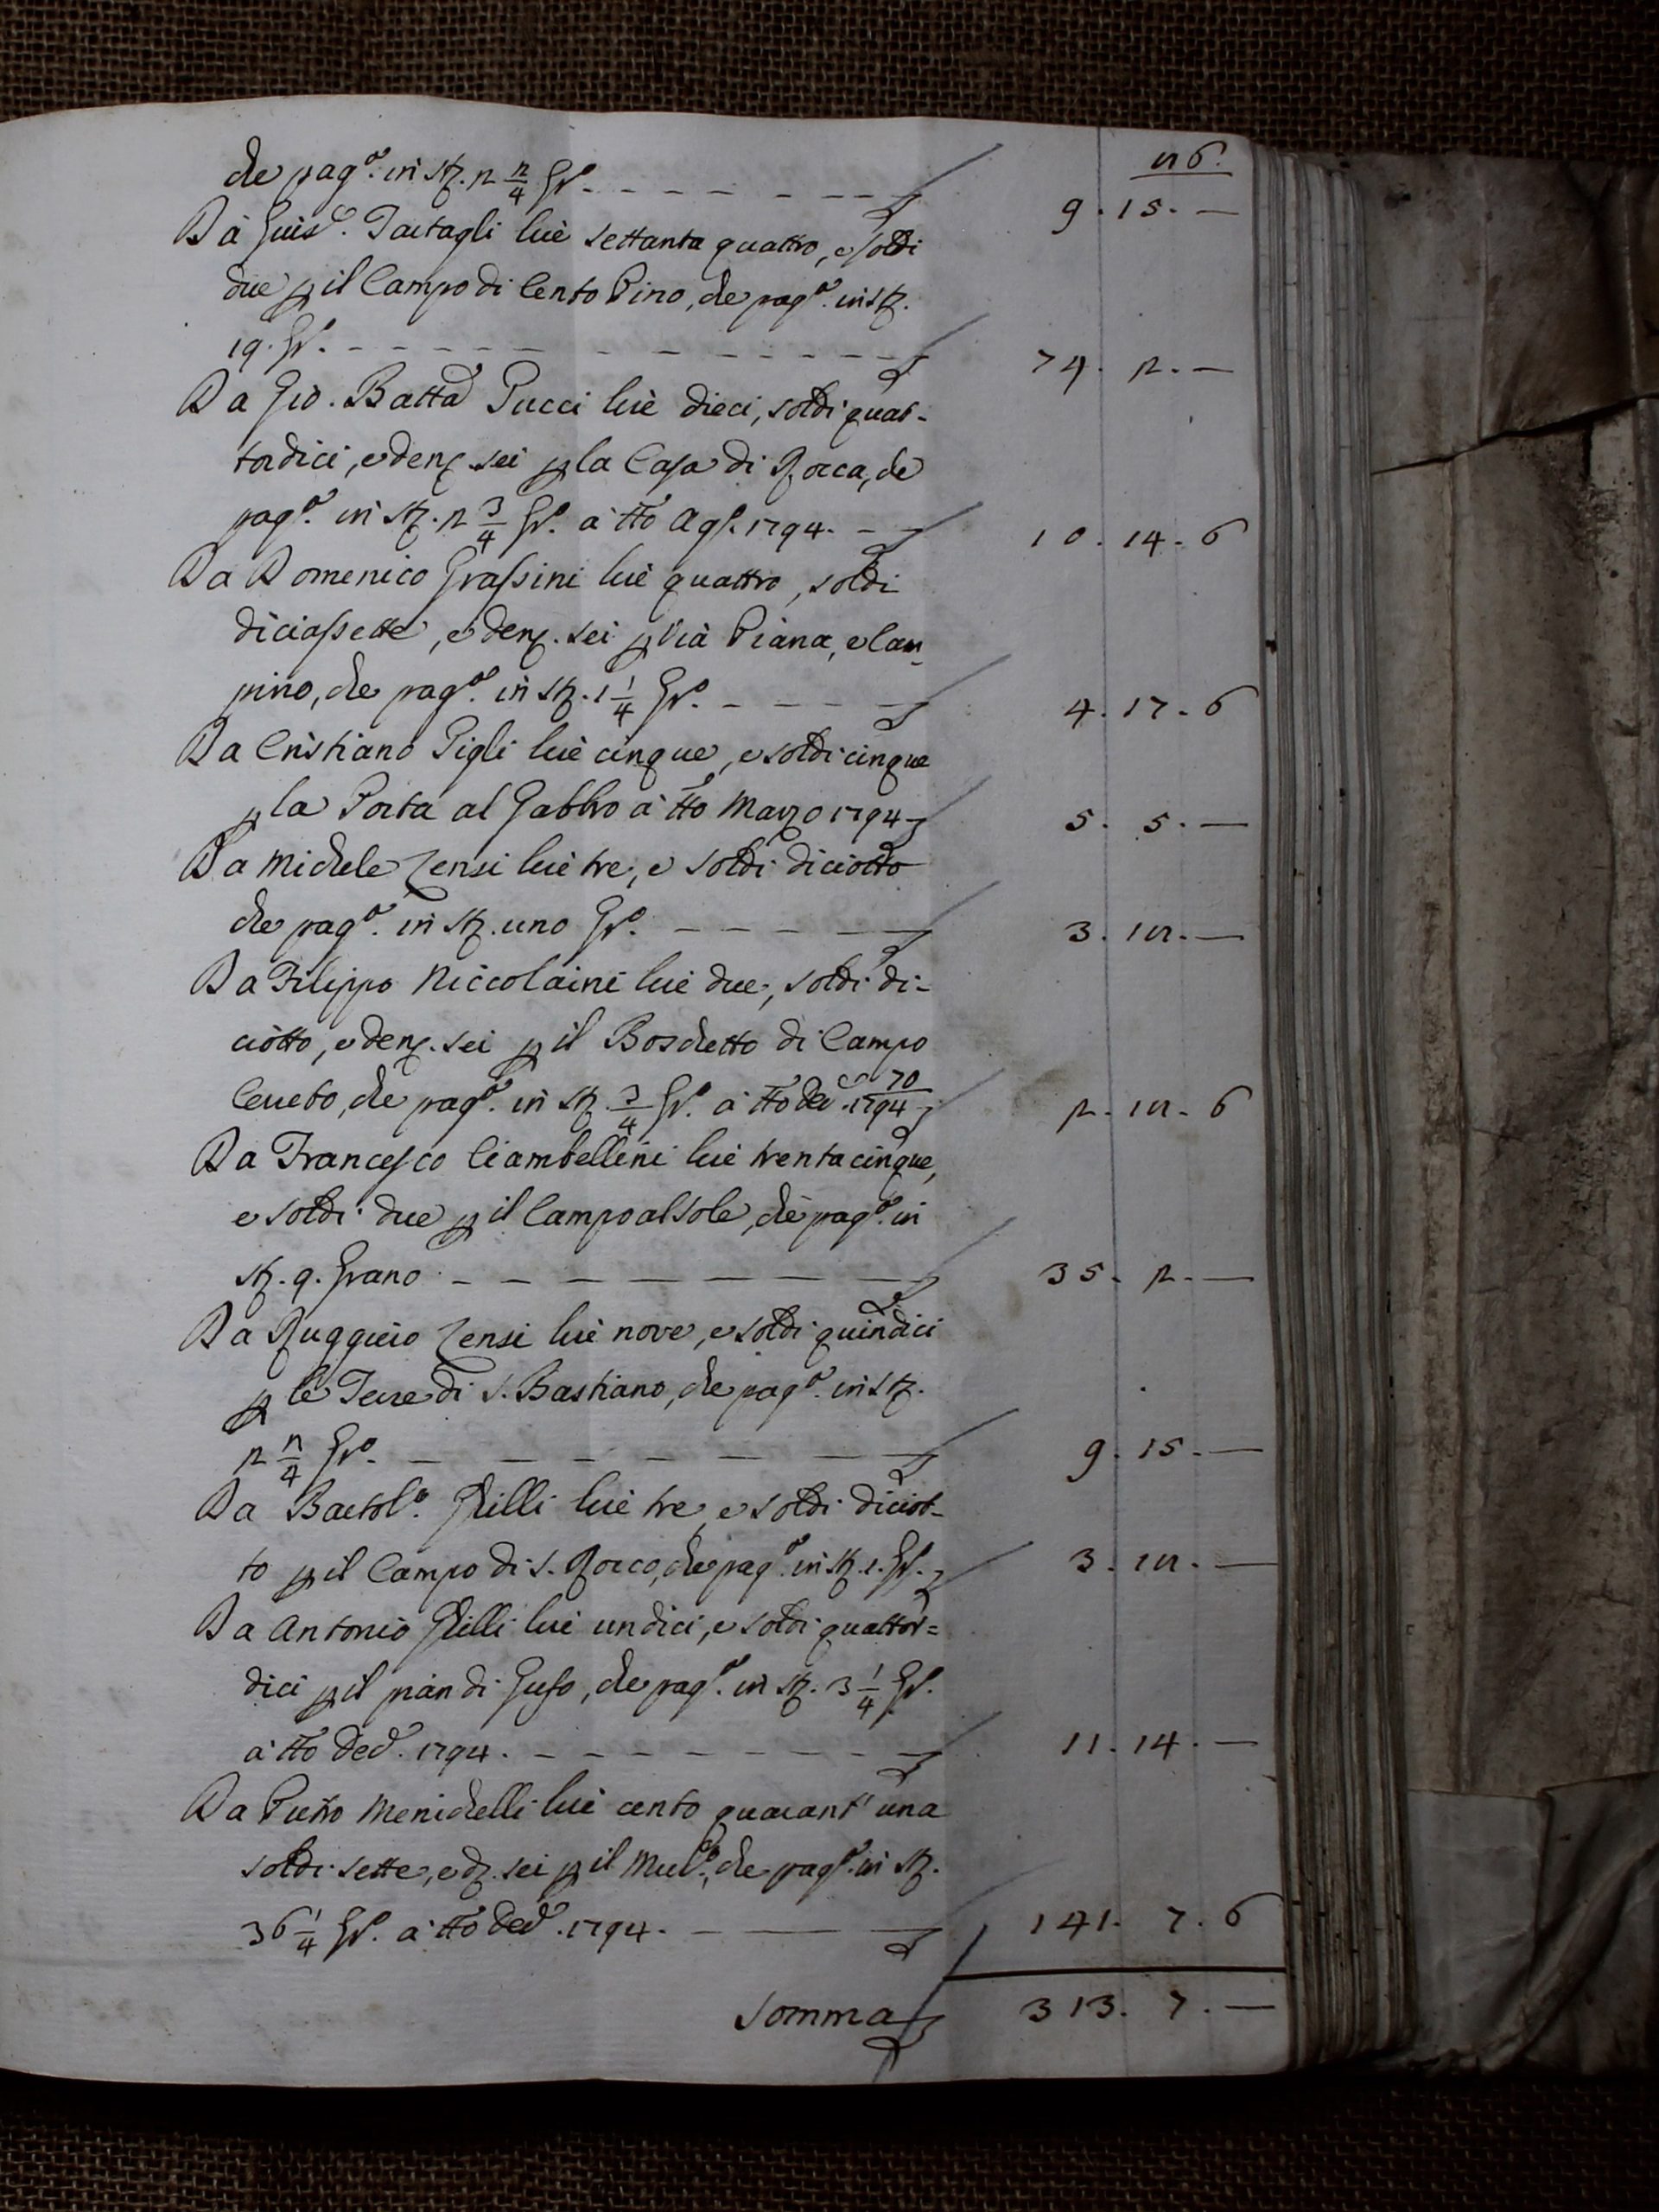 86.
che pag.o in st. 2 2/4 Gr.o 9. 15. —
Da Guis.e Tartagli lire settanta quattro, e soldi
due p il Campo di Cento Pino, che pag.o in st.
19. Gr.o 74. 2. —
Da Gio. Batta Pucci lire dieci, soldi quat=
tordici, e den. sei p la Casa di Rocca, che
pag.o in st. 2 3/4 Gr.o a tto Ag.o 1794. 10. 14. 6
Da Domenico Grassini lire quattro, soldi
diciassette, e den. sei p Via Piana, e Cam=
pino, che pag.o in st. 1 1/4 Gr.o 4. 17. 6
Da Cristiano Gigli lire cinque, e soldi cinque
p la Porta al Gabbro a tto Marzo 1794 5. 5. —
Da Michele Zensi lire tre, e soldi diciotto
che pag.o in st. uno Gr.o 3. 18. —
Da Filippo Niccolaini lire due, soldi di=
ciotto, e den. sei p il Boschetto di Campo
Cerreto, che pag.o in st. 3/4 Gr.o a tto 2. 18. 6
Da Francesco Ciambellini lire trentacinque,
e soldi due p il Campo al Sole, che pag.o in
st. 9. Grano 35. 2. —
Da Ruggiero Zensi lire nove, e soldi quindici
p le Terre di S. Bastiano, che pag.o in st.
2 2/4 Gr.o 9. 15. —
Da Bartol.o Grilli lire tre, e soldi diciot=
to p il Campo di S. Rocco, che pag.o in st. 1. Gr.o 3. 18. —
Da Antonio Grilli lire undici, e soldi quattor=
dici p il pian di Gufo, che pag.o in st. 3 1/4 Gr.o
a tto Dec.e 1794. 11. 14. —
Da Pietro Menichelli lire cento quarant' una
soldi sette, e d. sei p il che pag.o in st.
36 1/4 Gr.o a tto Dec.e 1794. 141. 7. 6
Somma 313. 7. —